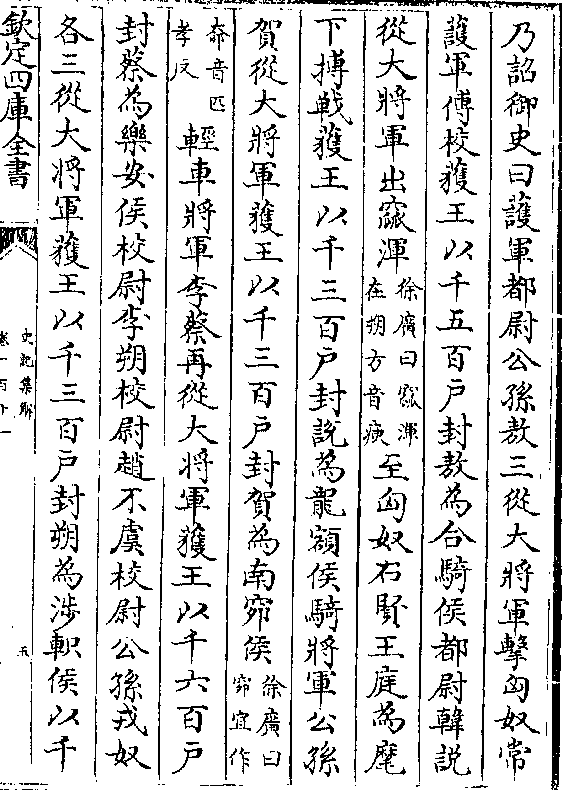 乃詔御史曰護軍都尉公孫敖三從大將軍擊匈奴常
護軍傅校獲王以千五百戶封敖為合騎侯都尉韓説
從大將軍出窳渾徐廣曰窳渾在朔方音庾至匈奴右賢王庭為麾
下搏戰獲王以千三百戶封説為龍頟侯騎將軍公孫
賀從大將軍獲王以千三百戶封賀為南窌侯徐廣曰窌宜作
奅音匹孝反輕車將軍李蔡再從大將軍獲王以千六百戶
封蔡為樂安侯校尉李朔校尉趙不虞校尉公孫戎奴
各三從大將軍獲王以千三百戶封朔為涉軹侯以千
欽定四庫全書
史記集解
卷一百十一
五